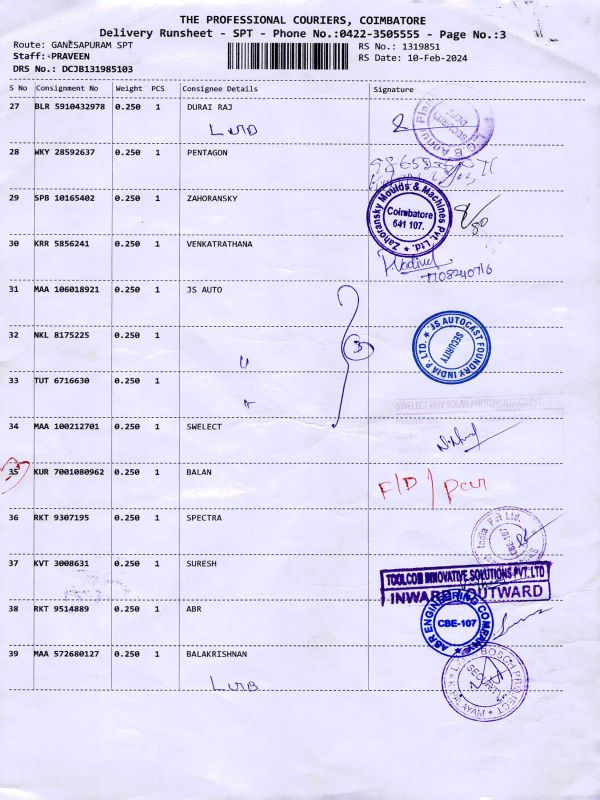 THE PROFESSIONAL COURIERS, COIMBATORE
Delivery Runsheet - SPT - Phone No.:0422-3505555 - Page No.:3
Route: GANESAPURAM SPT
RS No.: 1319851
Staff: PRAVEEN
RS Date: 10-Feb-2024
DRS No.: DCJB131985103
S No Consignment No Weight PCS Consignee Details Signature
27 BLR 5910432978 0.250 1 DURAI RAJ
28 WKY 28592637 0.250 1 PENTAGON
29 SPB 10165402 0.250 1 ZAHORANSKY
Zahoransky Moulds & Machines Pvt. Ltd.
Coimbatore
641 107.
30 KRR 5856241 0.250 1 VENKATRATHANA
31 MAA 106018921 0.250 1 JS AUTO
32 NKL 8175225 0.250 1
3
JS AUTOCAST FOUNDRY INDIA P. LTD.
SECURITY
33 TUT 6716630 0.250 1
34 MAA 100212701 0.250 1 SWELECT
35 KUR 7001080962 0.250 1 BALAN
F/D /
36 RKT 9307195 0.250 1 SPECTRA
India Pvt Ltd.
CBE-107
37 KVT 3008631 0.250 1 SURESH
TOOLCOM INNOVATIVE SOLUTIONS PVT. LTD
INWARD OUTWARD
38 RKT 9514889 0.250 1 ABR
ABR ENGINEERING COMPANY
CBE-107
39 MAA 572680127 0.250 1 BALAKRISHNAN
SECURITY